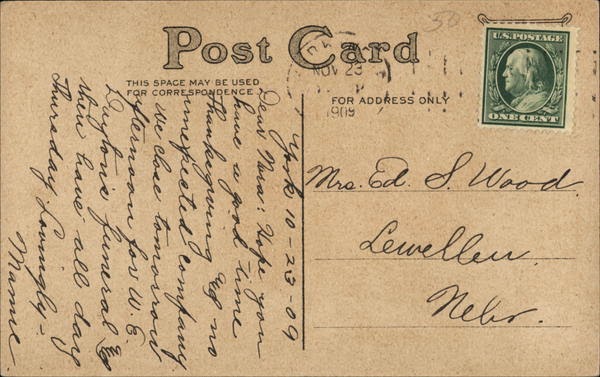 Post Card
THIS SPACE MAY BE USED
FOR CORRESPONDENCE
FOR ADDRESS ONLY
NOV 23
1909
U.S. POSTAGE
ONE CENT
50
York 10-23-09
Dear Nora: Hope you
have a good time
thanksgiving if no
unexpected company
We close tomorrow
afternoon for W. E.
Dayton's funeral &
then have all day
Thursday. Lovingly -
Mamie
Mrs. Ed. S. Wood.
Lewellen.
Nebr.